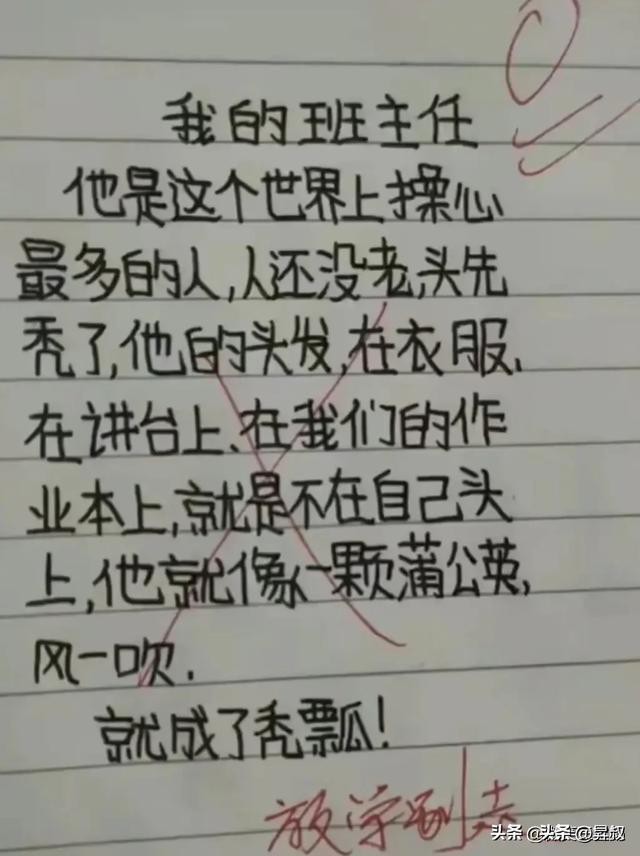 我的班主任
他是这个世界上操心
最多的人,人还没老,头先
秃了,他的头发,在衣服、
在讲台上、在我们的作
业本上,就是不在自己头
上,他就像一颗蒲公英,
风一吹.
就成了秃瓢!
放学别走
头条 @头条 @昙叔